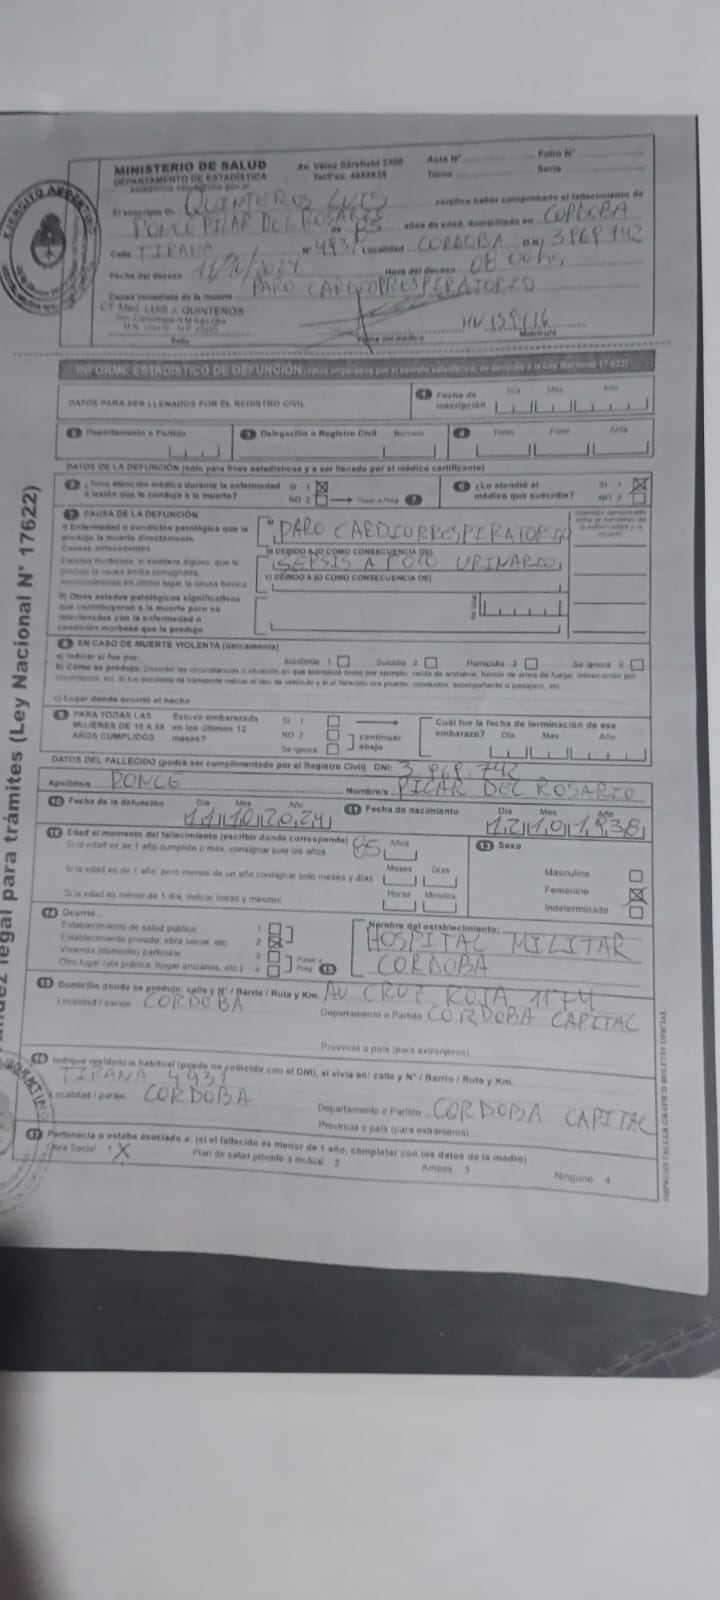 MINISTERIO DE SALUD Av. Vélez Sarsfield 2300 Acta N° Folio N°
DEPARTAMENTO DE ESTADÍSTICA Tel/Fax: Tomo Serie
El suscripto Dr. QUINTEROS LUIS certifica haber comprobado el fallecimiento de
PONCE PILAR DEL ROSARIO de 85 años de edad, domiciliado en CORDOBA
Calle TIRANA N° 4931 Localidad CORDOBA DNI 3.969.742
Fecha del deceso 11/10/2024 Hora del deceso 08:00 hs
Causa inmediata de la muerte PARO CARDIORRESPIRATORIO
CT Med. LUIS J. QUINTEROS
MN 159416
Sello Firma del médico Matrícula
INFORME ESTADÍSTICO DE DEFUNCIÓN
DATOS PARA SER LLENADOS POR EL REGISTRO CIVIL 1 Fecha de inscripción Día Mes Año
2 Departamento o Partido 3 Delegación o Registro Civil Número 4 Tomo Folio Acta
DATOS DE LA DEFUNCIÓN (sólo para fines estadísticos y a ser llenado por el médico certificante)
¿Tuvo atención médica durante la enfermedad SI 1 ¿Lo atendió el SI 1
o lesión que le condujo a la muerte? NO 2 Pasar a Preg 7 médico que suscribe? NO 2
7 CAUSA DE LA DEFUNCIÓN
I) Enfermedad o condición patológica que le a) PARO CARDIORRESPIRATORIO
produjo la muerte directamente
Causas antecedentes b) DEBIDO A (O COMO CONSECUENCIA DE)
Estados morbosos, si existiera alguno, que le SEPSIS A FOCO URINARIO
produjo la causa arriba consignada, c) DEBIDO A (O COMO CONSECUENCIA DE)
mencionándose en último lugar la causa básica
II) Otros estados patológicos significativos
que contribuyeron a la muerte pero no
relacionados con la enfermedad o
condición morbosa que la produjo
8 EN CASO DE MUERTE VIOLENTA (únicamente)
a) Indicar si fue por: Accidente 1 Suicidio 2 Homicidio 3 Se ignora 9
c) Lugar donde ocurrió el hecho
9 PARA TODAS LAS Estuvo embarazada SI 1 Cuál fue la fecha de terminación de ese
MUJERES DE 10 A 59 en los últimos 12 NO 2 continuar embarazo? Día Mes Año
AÑOS CUMPLIDOS meses? Se ignora abajo
DATOS DEL FALLECIDO (podrá ser cumplimentado por el Registro Civil) DNI: 3.969.742
Apellido/s PONCE Nombre/s PILAR DEL ROSARIO
10 Fecha de la defunción Día Mes Año 11 10 2024 11 Fecha de nacimiento Día Mes Año 12 10 1938
12 Edad al momento del fallecimiento (escribir donde corresponda) 85 Años 13 Sexo
Si la edad es de 1 año cumplido o más, consignar solo los años
Si la edad es 1 año, pero menos de un año consignar solo meses y días Meses Días Masculino
Si la edad es menor de 1 día, indicar horas y minutos Horas Minutos Femenino
Indeterminado
14 Ocurrió... Nombre del establecimiento:
Establecimiento de salud público 1 HOSPITAL MILITAR
Establecimiento privado, obra social, etc 2 CORDOBA
Vivienda (domicilio) particular 3
Otro lugar (vía pública, hogar ancianos, etc.) 4 Pasar a Preg 15
15 Domicilio donde se produjo: calle y N° / Barrio / Ruta y Km. AV CRUZ ROJA 1174
Localidad / paraje CORDOBA Departamento o Partido CORDOBA CAPITAL
Provincia o país (para extranjeros)
16 Indique residencia habitual (puede no coincidir con el DNI), al vivía en: calle y N° / Barrio / Ruta y Km.
TIRANA 4931
Localidad / paraje CORDOBA Departamento o Partido CORDOBA CAPITAL
Provincia o país (para extranjeros)
17 Pertenecía o estaba asociado a: (si el fallecido es menor de 1 año, completar con los datos de la madre)
Obra Social 1 X Plan de salud privado o mutual 2 Ambos 3 Ninguno 4
dez legal para trámites (Ley Nacional N° 17622)
IMPRESO TALLER GRÁFICO BOLETÍN OFICIAL
EJERCITO ARGENTINO